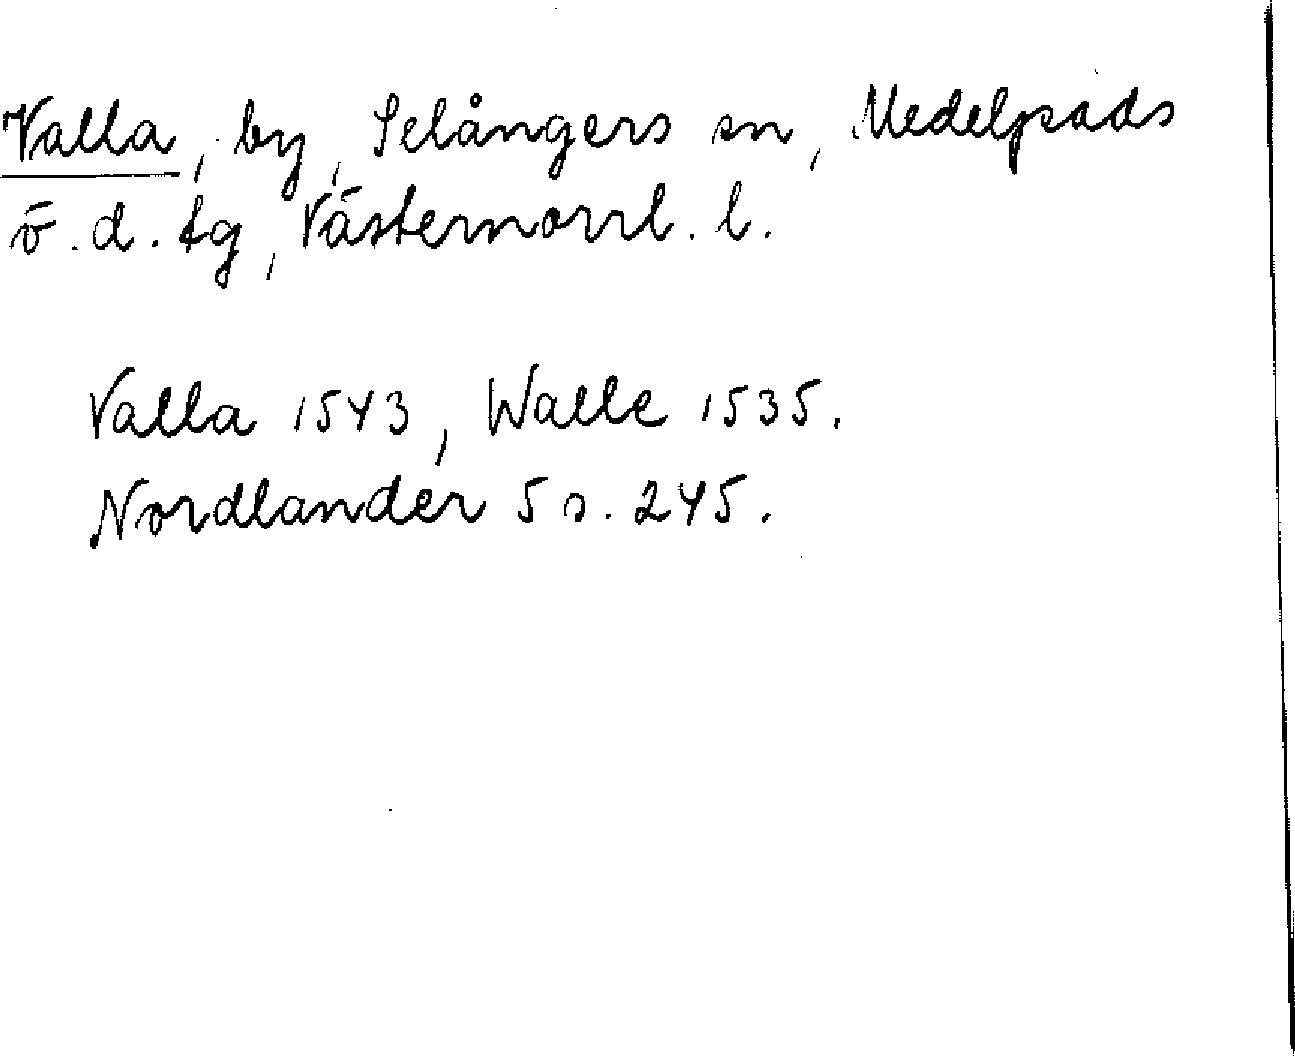 Valla, by, Selångers sn, Medelpads
v. d. tg, Västernorrl. l.
Valla 1543, Walle 1535.
Nordlander 5 s. 245.